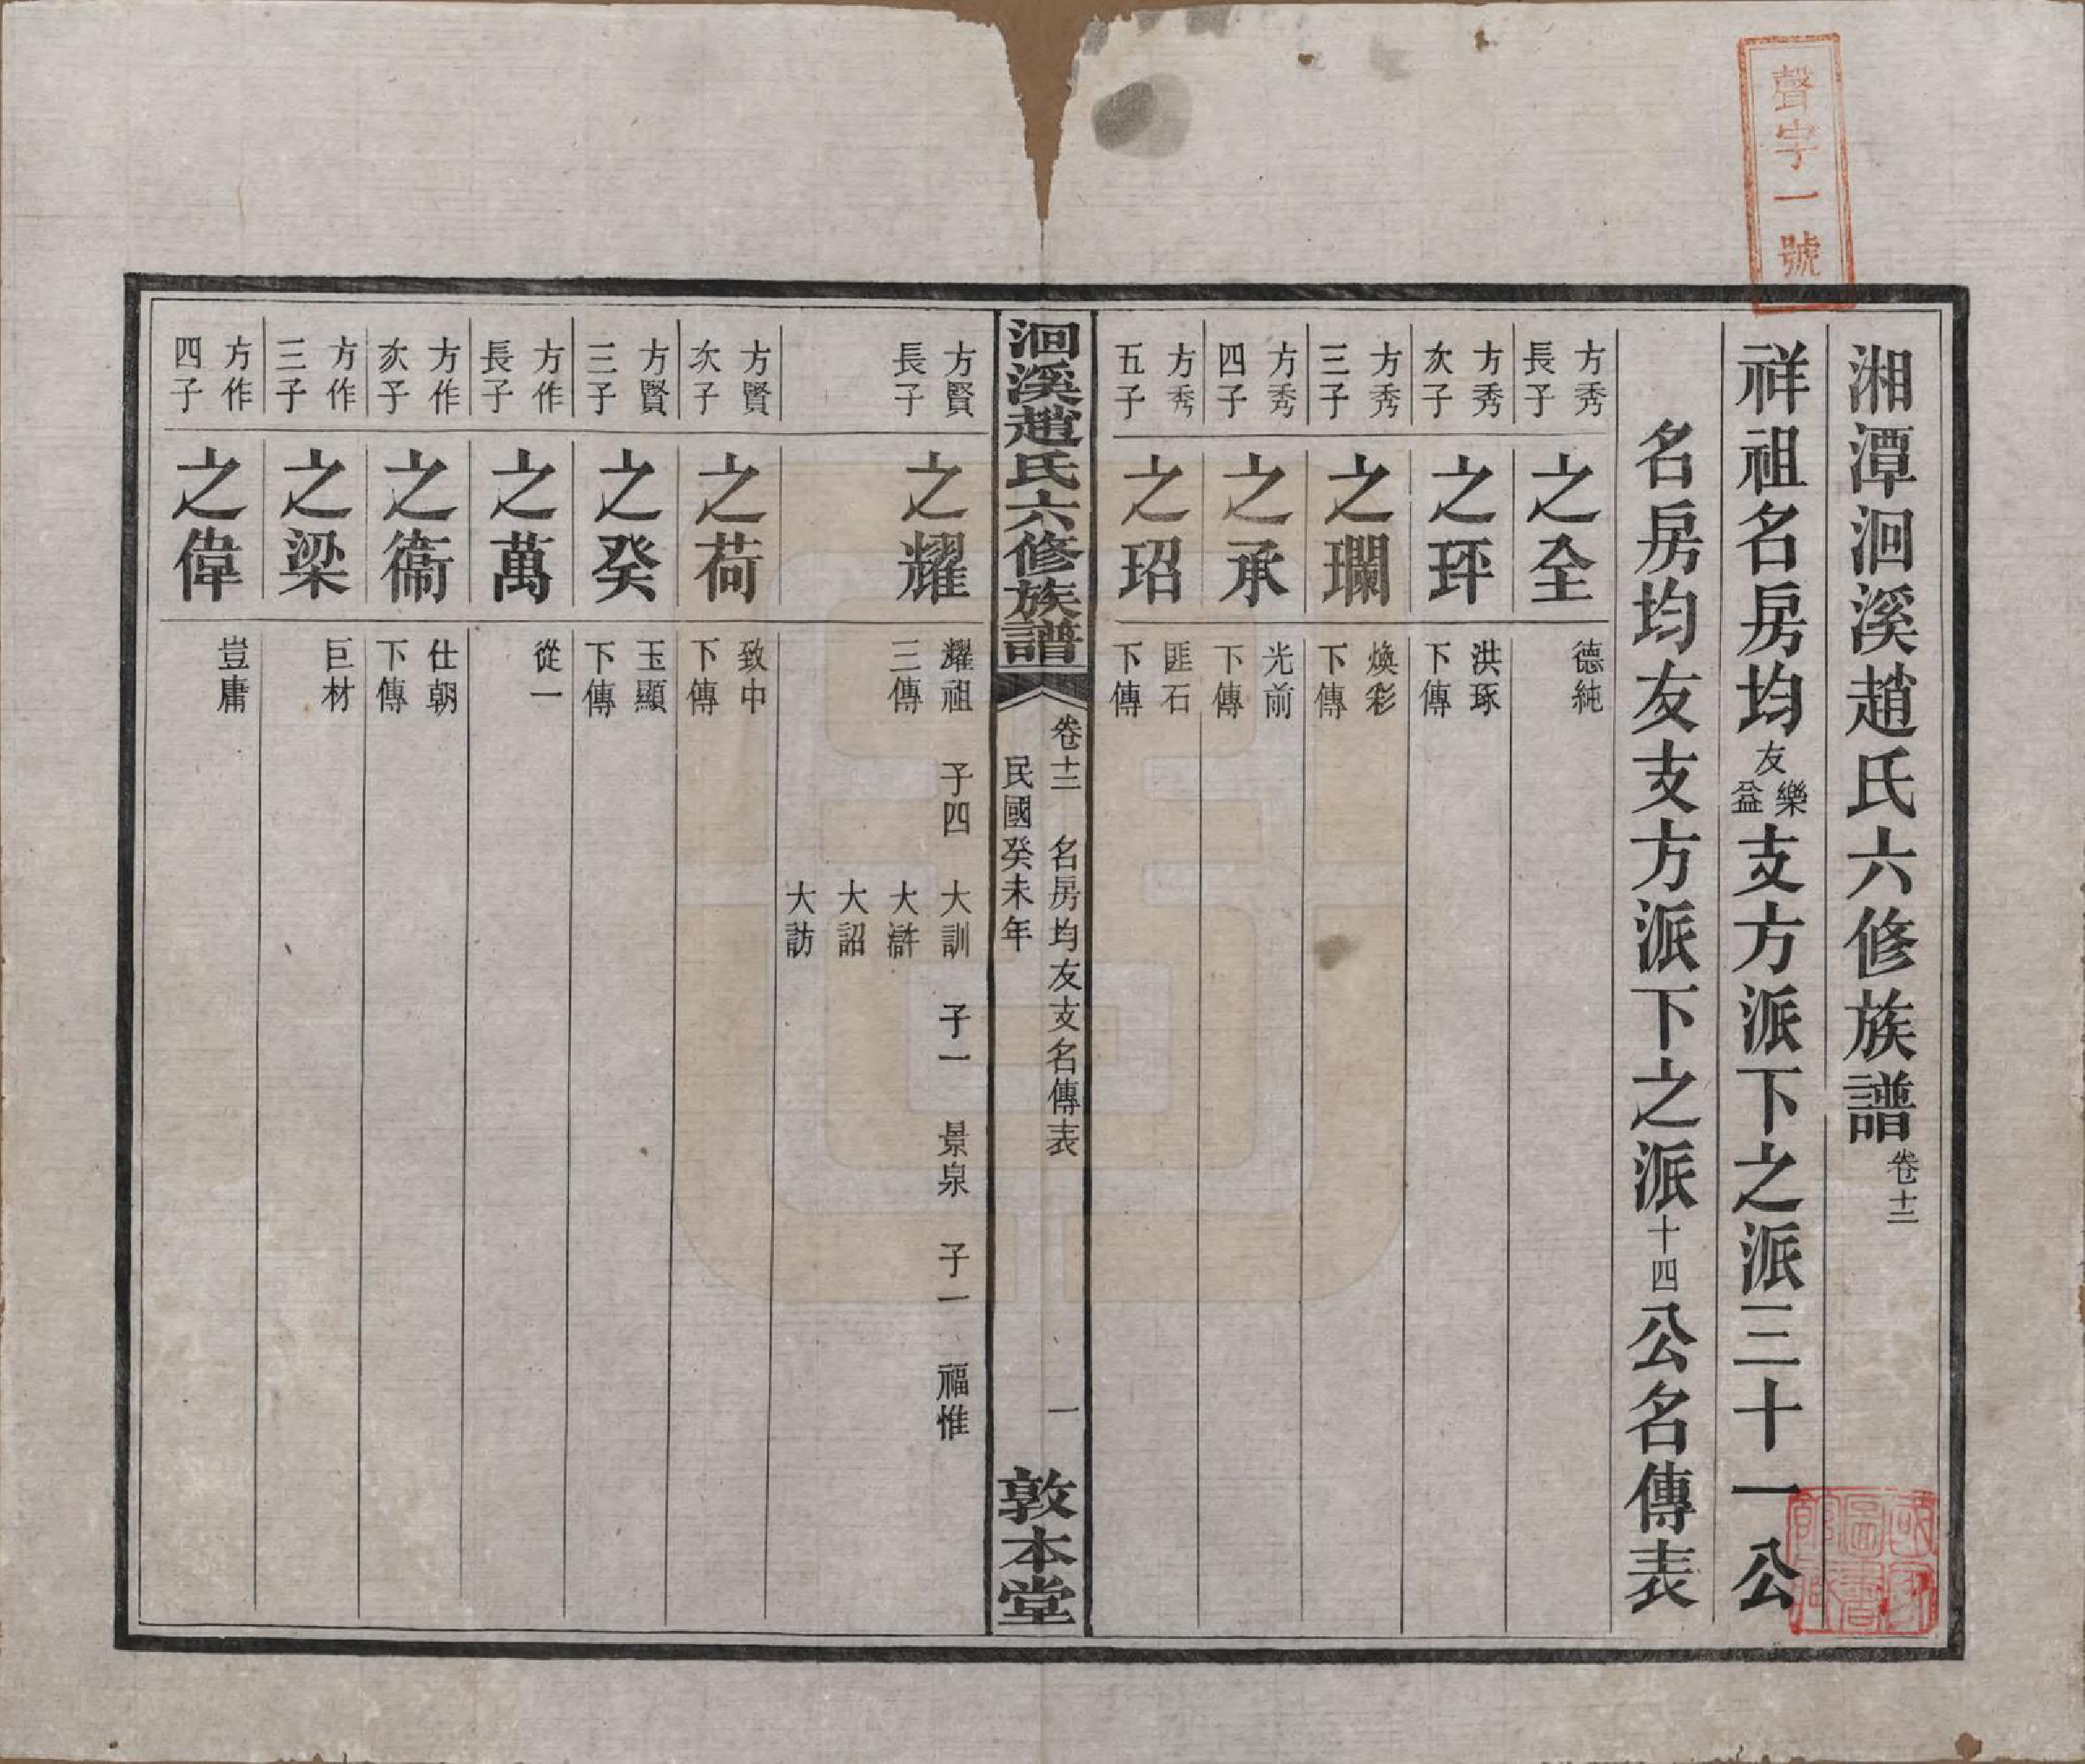 聲字一號
湘潭洄溪趙氏六修族譜卷十二
祥祖名房均友樂益支方派下之派三十一公
名房均友支方派下之派十四公名傳表
方秀長子 之全 德純
方秀次子 之玶 洪琢下傳
方秀三子 之瓓 煥彩下傳
方秀四子 之承 光前下傳
方秀五子 之玿 匪石下傳
洄溪趙氏六修族譜 卷十二 名房均友支名傳表 一
民國癸未年
敦本堂
方賢長子 之耀 耀祖三傳 子四 大訓 子一 景泉 子一 福惟
大滸
大詔
大訪
方賢次子 之荷 致中下傳
方賢三子 之癸 玉顯下傳
方作長子 之萬 從一
方作次子 之衞 仕朝下傳
方作三子 之梁 巨材
方作四子 之偉 豈庸